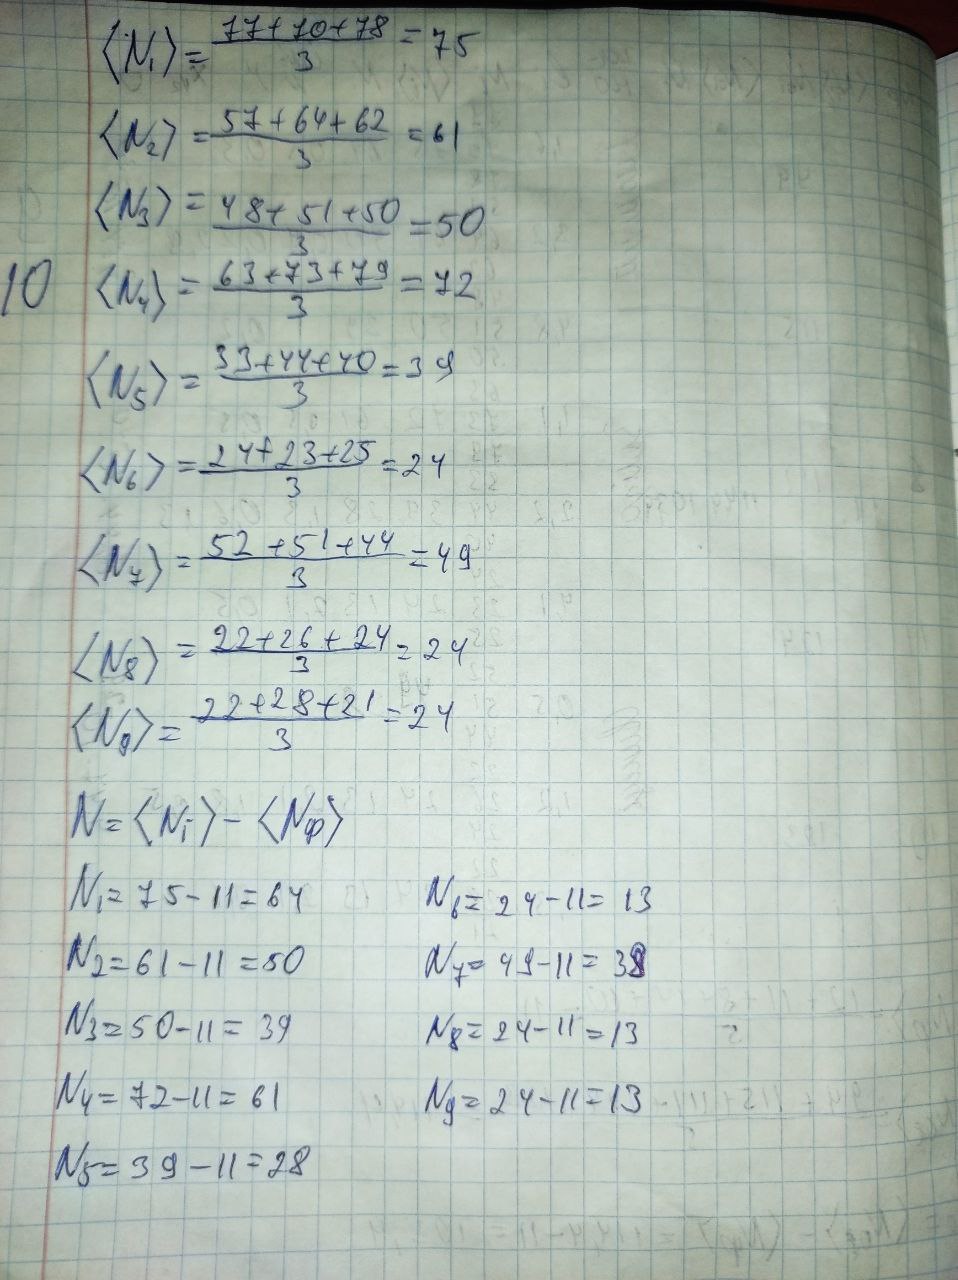 ⟨N₁⟩ = (77+70+78)/3 = 75
⟨N₂⟩ = (57+64+62)/3 = 61
⟨N₃⟩ = (48+51+50)/3 = 50
10 ⟨N₄⟩ = (63+73+79)/3 = 72
⟨N₅⟩ = (33+44+40)/3 = 39
⟨N₆⟩ = (24+23+25)/3 = 24
⟨N₇⟩ = (52+51+44)/3 = 49
⟨N₈⟩ = (22+26+24)/3 = 24
⟨N₉⟩ = (22+28+21)/3 = 24
N = ⟨Nᵢ⟩ - ⟨Nф⟩
N₁ = 75-11 = 64 N₆ = 24-11 = 13
N₂ = 61-11 = 50 N₇ = 49-11 = 38
N₃ = 50-11 = 39 N₈ = 24-11 = 13
N₄ = 72-11 = 61 N₉ = 24-11 = 13
N₅ = 39-11 = 28